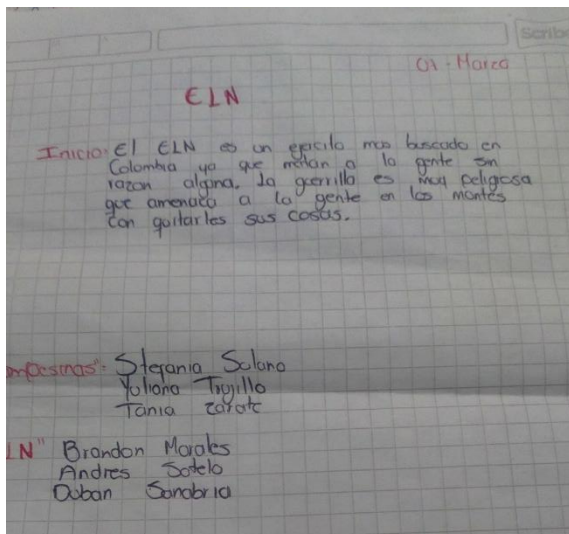 Scribe
01 - Marzo
ELN
Inicio: El ELN es un ejercito mas buscado en
Colombia ya que matan a la gente sin
razon alguna. la guerrilla es muy peligrosa
que amenaza a la gente en los montes
Con quitarles sus cosas.
mpesinas": Stefania Solano
Yuliana Trujillo
Tania zarate
LN" Brandon Morales
Andres Sotelo
Duban Sanabria